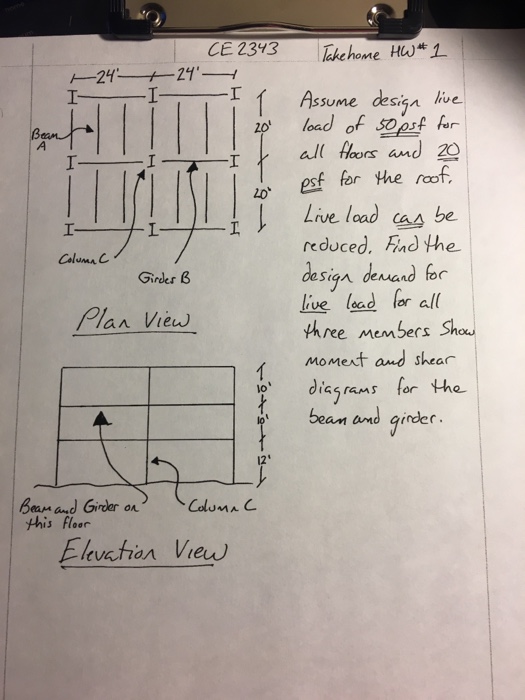 CE 2343
Takehome HW#1
24' 24'
Beam
A
20'
20'
Column C
Girder B
Plan View
Assume design live
load of 50psf for
all floors and 20
psf for the roof.
Live load can be
reduced. Find the
design demand for
live load for all
three members Show
moment and shear
diagrams for the
beam and girder.
10'
10'
12'
Beam and Girder on
this floor
Column C
Elevation View